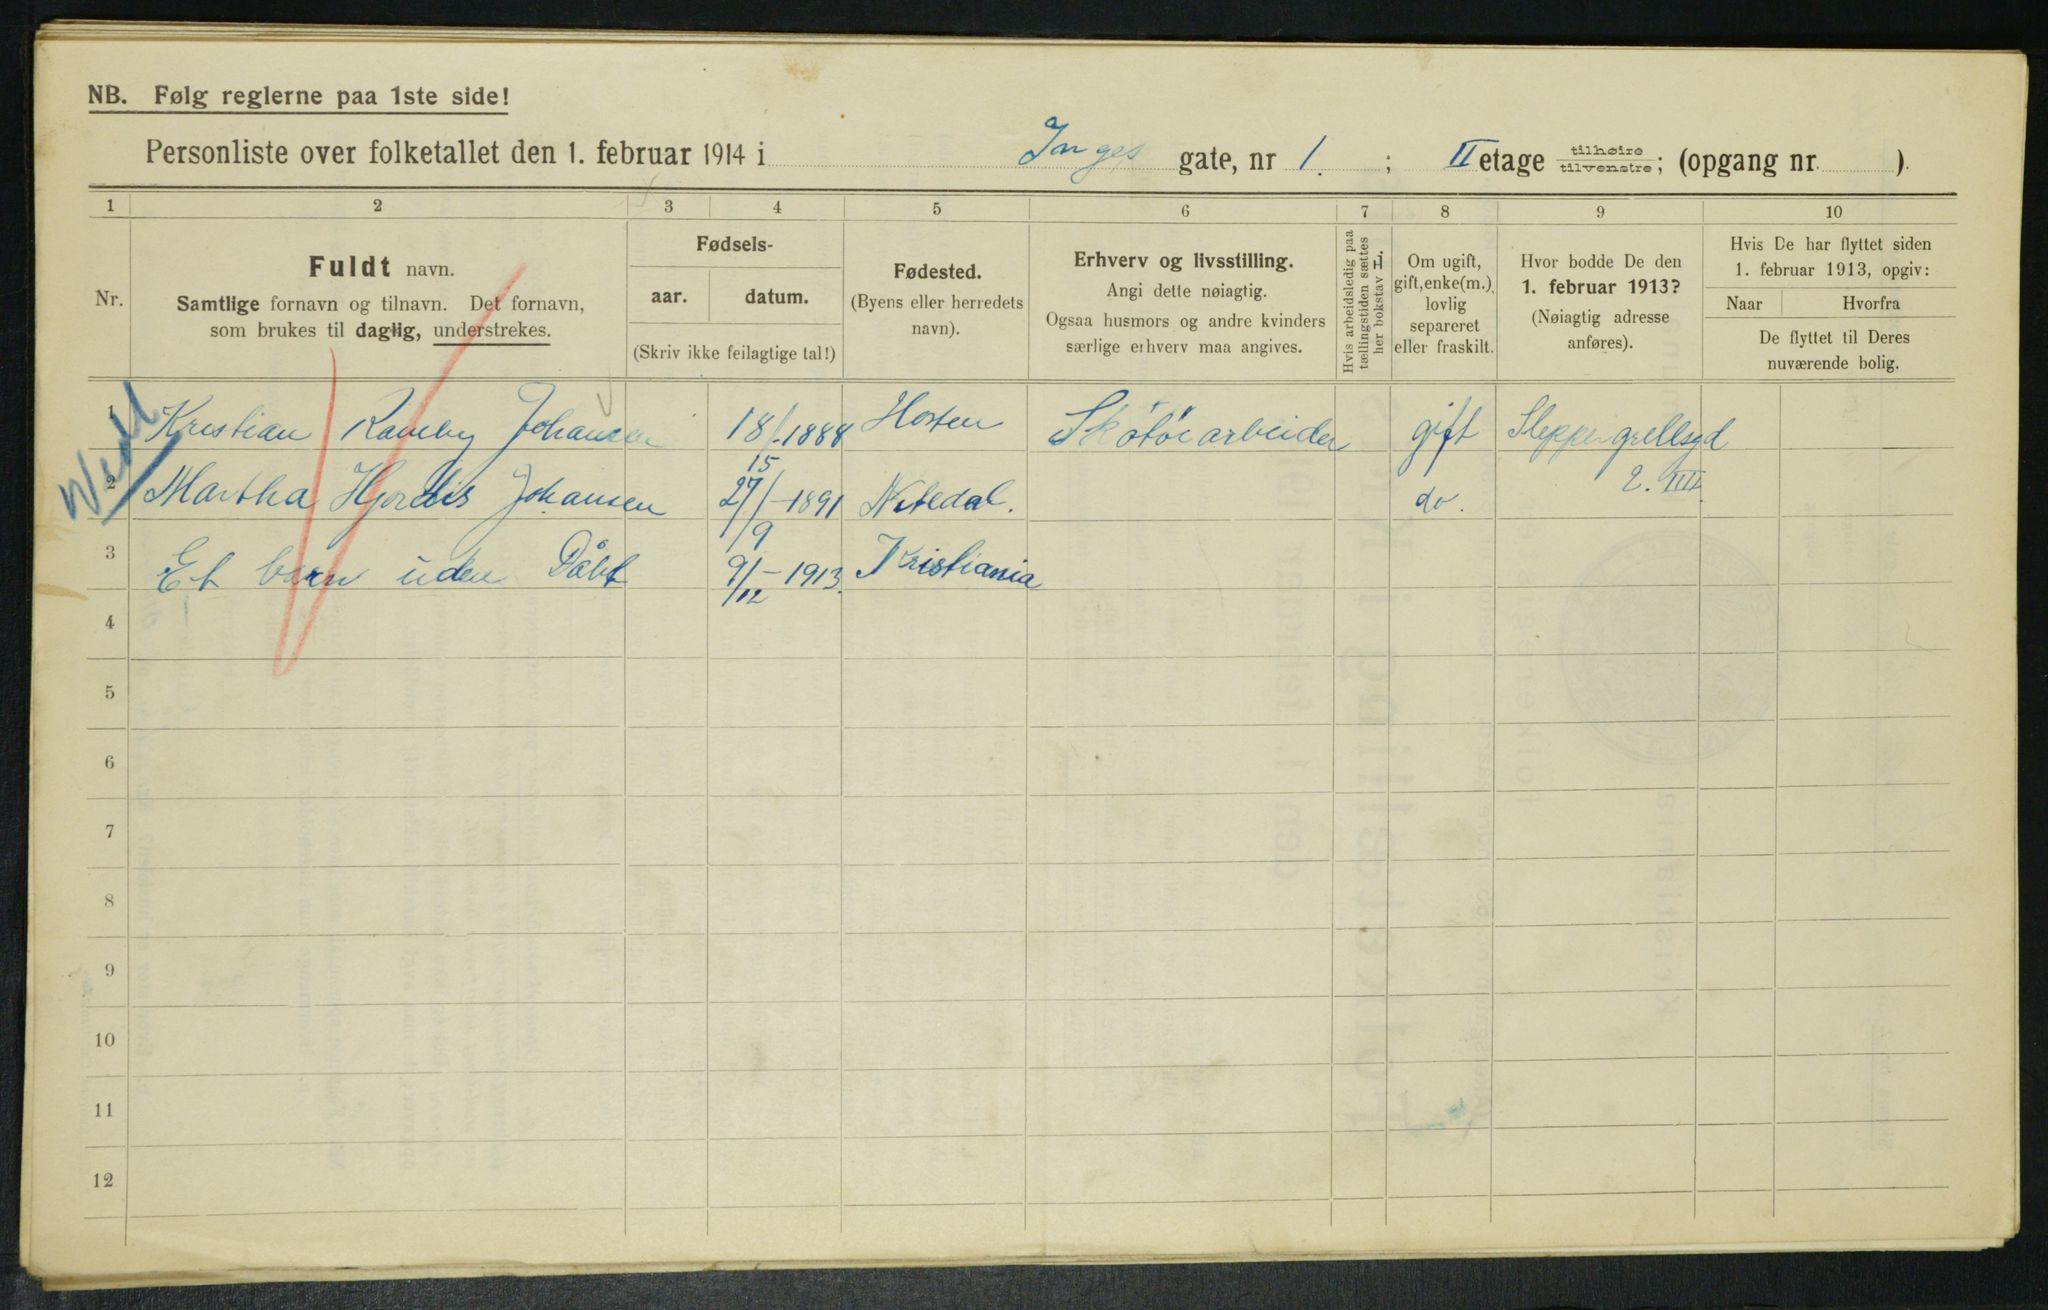 NB. Følg reglerne paa 1ste side!
Personliste over folketallet den 1. februar 1914 i Inges gate, nr 1. ; II etage tilhøire/tilvenstre; (opgang nr. ).
1 2 3 4 5 6 7 8 9 10
Nr.
Fuldt navn.
Samtlige fornavn og tilnavn. Det fornavn,
som brukes til daglig, understrekes.
Fødsels-
aar. datum.
(Skriv ikke feilagtige tal!)
Fødested.
(Byens eller herredets
navn).
Erhverv og livsstilling.
Angi dette nøiagtig.
Ogsaa husmors og andre kvinders
særlige erhverv maa angives.
Hvis arbeidsledig paa
tællingstiden sættes
her bokstav L.
Om ugift,
gift, enke(m.),
lovlig
separeret
eller fraskilt.
Hvor bodde De den
1. februar 1913?
(Nøiagtig adresse
anføres).
Hvis De har flyttet siden
1. februar 1913, opgiv:
Naar Hvorfra
De flyttet til Deres
nuværende bolig.
1 Kristian Johansen 18/15-1888 Horten Skotöiarbeider gift Steppengrellsgd
2 Martha Hjordis Johansen 27/9-1891 Nitedal. do. 2. IIII
3 Et barn uden Dåbt 9/12-1913. Kristiania
4
5
6
7
8
9
10
11
12